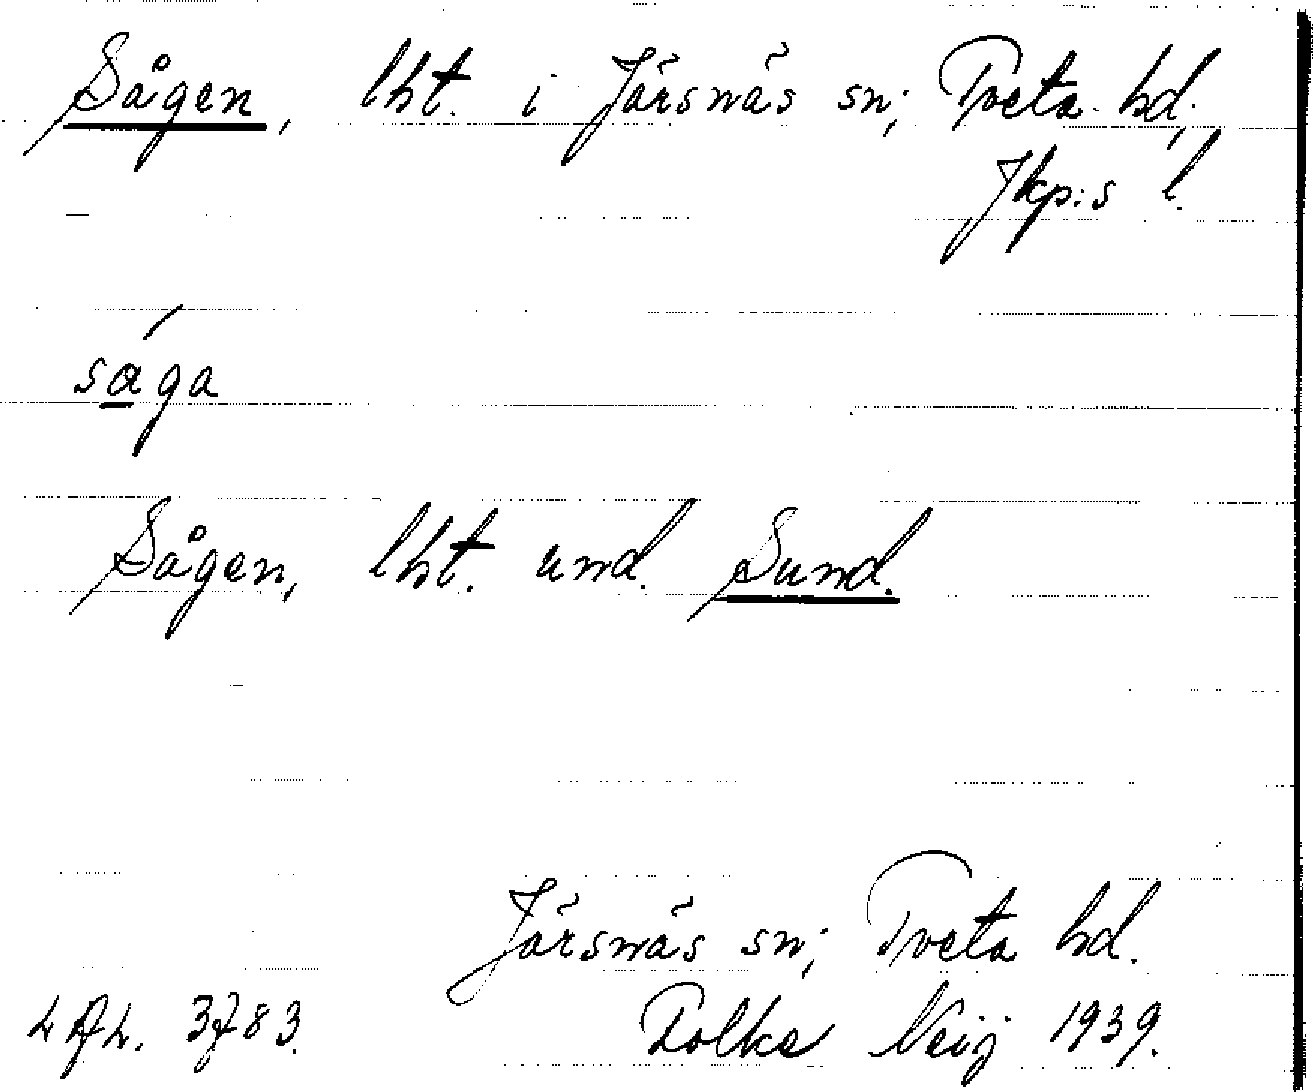 Sågen, lht. i Järsnäs sn; Tveta hd,
Jkp:s l.
såga
Sågen, lht. und. Sund.
Järsnäs sn; Tveta hd.
3783. Folke Neij 1939.